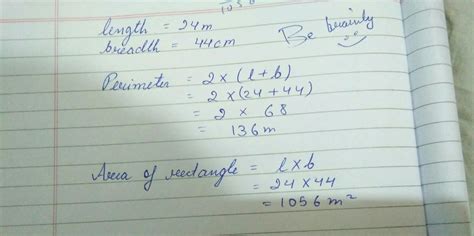 1056
length = 24m
breadth = 44cm
Be brainly
Perimeter = 2 × (l+b)
= 2 × (24 + 44)
= 2 × 68
= 136 m
Area of rectangle = l × b
= 24 × 44
= 1056 m²